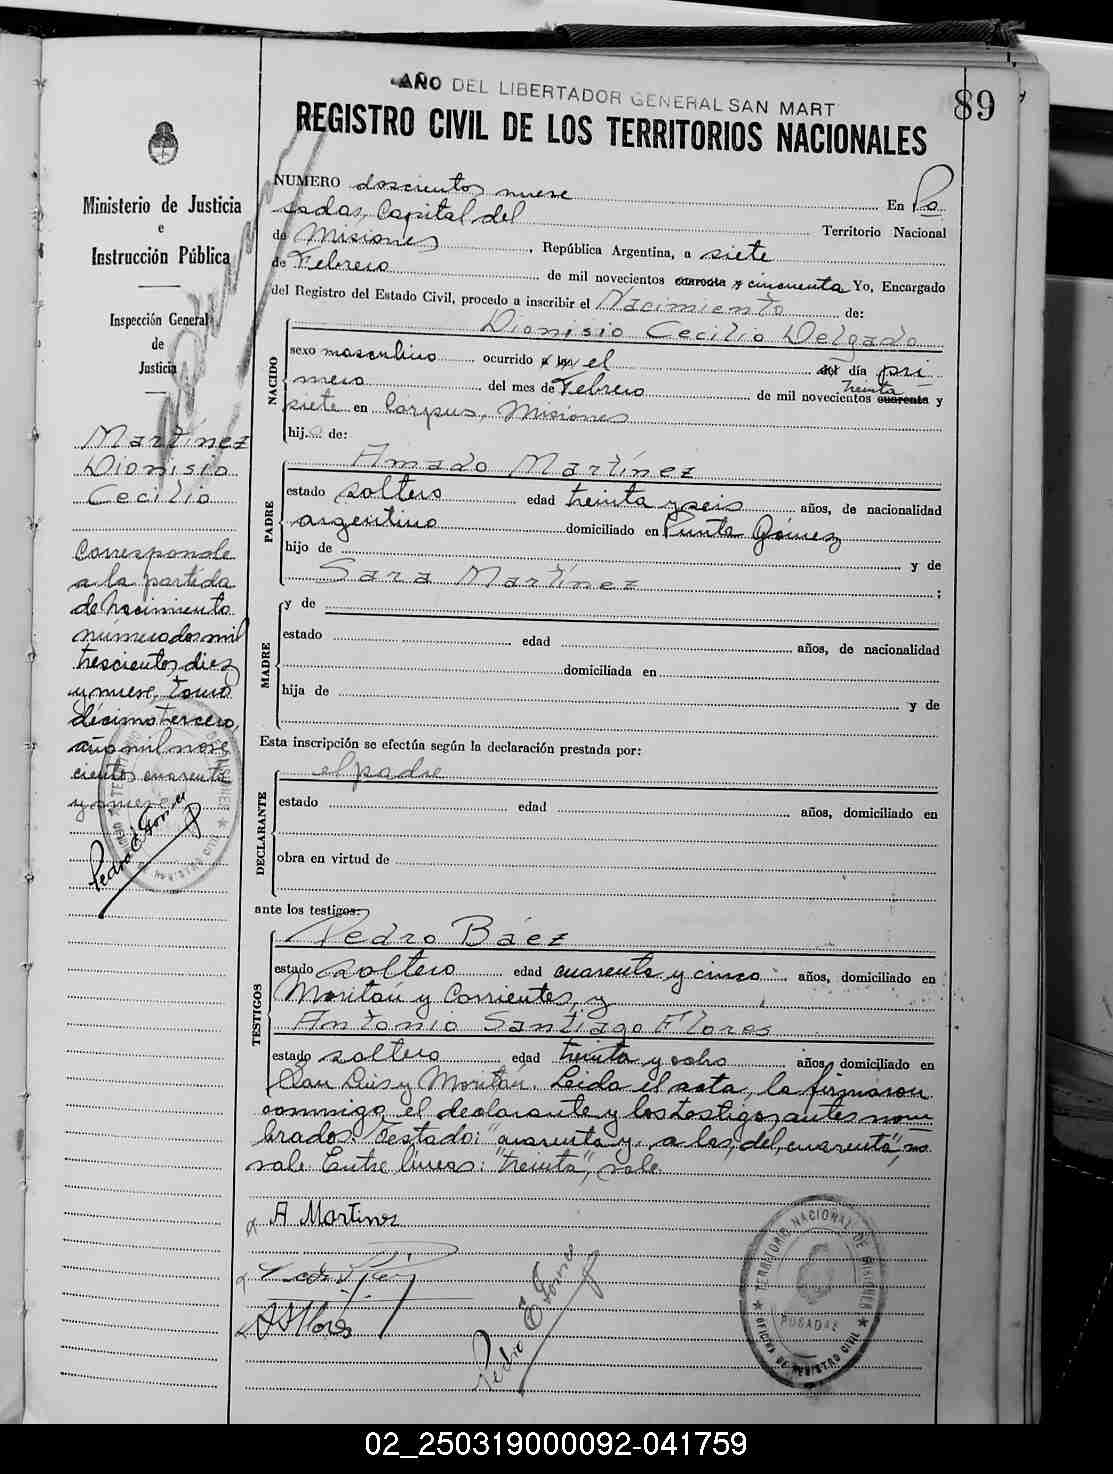 AÑO DEL LIBERTADOR GENERAL SAN MART
89
REGISTRO CIVIL DE LOS TERRITORIOS NACIONALES
Ministerio de Justicia
e
Instrucción Pública
Inspección General
de
Justicia
Martínez
Dionisio
Cecilio
Corresponde
a la partida
de nacimiento
número dos mil
trescientos diez
y nueve, tomo
décimo tercero,
año mil nove
cientos cuarenta
y nueve
Pedro E Gomez
NUMERO doscientos nueve En Po
sadas, Capital del Territorio Nacional
de Misiones, República Argentina, a siete
de Febrero de mil novecientos cuarenta y cincuenta Yo, Encargado
del Registro del Estado Civil, procedo a inscribir el Nacimiento de:
NACIDO
Dionisio Cecilio Delgado
sexo masculino ocurrido a las el del día pri
mero del mes de Febrero de mil novecientos cuarenta treinta y
siete en Corpus, Misiones
hij.o de:
PADRE
Amado Martínez
estado soltero edad treinta y seis años, de nacionalidad
argentino domiciliado en Punta Gómez
hijo de y de
Sara Martínez ;
MADRE
y de
estado edad años, de nacionalidad
domiciliada en
hija de y de
Esta inscripción se efectúa según la declaración prestada por:
DECLARANTE
el padre
estado edad años, domiciliado en
obra en virtud de
ante los testigos:
TESTIGOS
Pedro Báez
estado soltero edad cuarenta y cinco años, domiciliado en
Moritán y Corrientes, y
Antonio Santiago Flores
estado soltero edad treinta y ocho años, domiciliado en
San Luis y Moritán. Leida el acta, la firmaron
conmigo el declarante y los testigos antes nom
brados. Testado: "cuarenta y, a las, del, cuarenta", no
vale. Entre líneas: "treinta", vale.
A Martinez
A S Flores
Pedro E Gomez
TERRITORIO NACIONAL DE MISIONES
POSADAS
OFICINA DE REGISTRO CIVIL
02_250319000092-041759